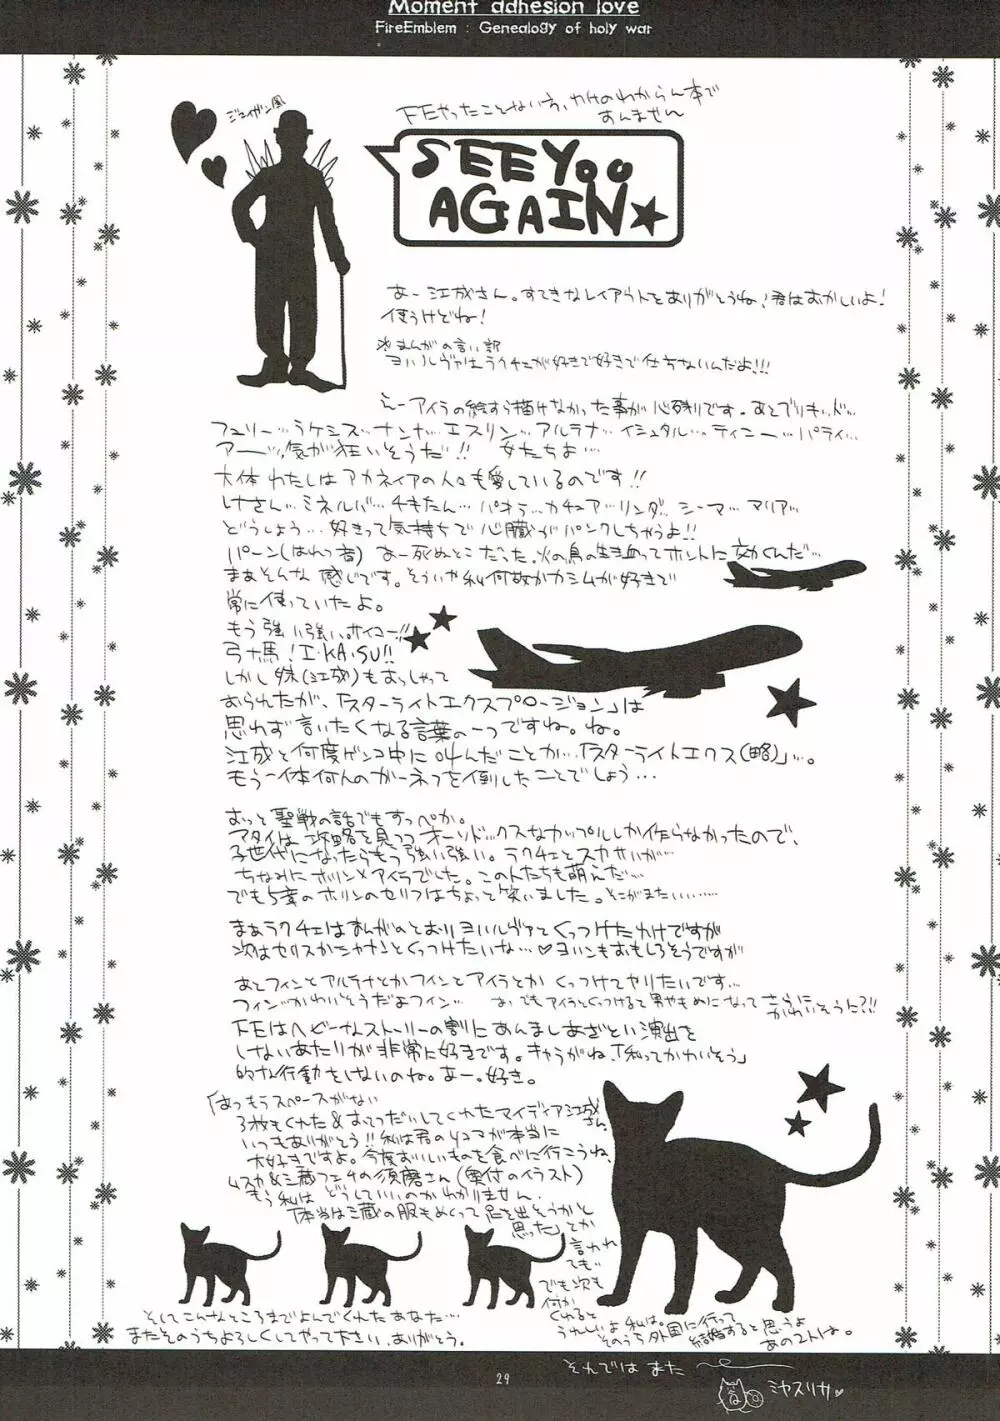 Moment adhesion love
FireEmblem : Genealogy of holy war
ジェイガン風
FEやったことない方、わけのわからん本で
すんません
SEE YOU
AGAIN★
あー江成さん。すてきなレイアウトをありがとうね！君はおかしいよ！
使うけどね！
※まんがの言い訳
ヨハルヴァはラクチェが好きで好きで仕方ないんだよ!!!
えーアイラの絵すら描けなかった事が心残りです。あとブリギッド…
フュリー…ラケシス…ナンナ…エスリン…アルテナ…イシュタル…ティニー…パティ…
アーー…気が狂いそうだ!! 女たちよ…
大体わたしはアカネイアの人々も愛しているのです!!
しーださん…ミネルバ…チキたん…パオラ…カチュア…リンダ…シーマ…マリア…
どうしよう…好きって気持ちで心臓がパンクしちゃうよ!!
パーン(はれつ音) あー死ぬとこだった。火の鳥の生き血ってホントに効くんだ…
まあそんな感じです。そういや私何故かカシムが好きで
常に使っていたよ。
もう強い強い。ホイコー!!
弓+馬！I・KA・SU!!
しかし妹(江成)もおっしゃって
おられたが、「スターライトエクスプロージョン」は
思わず言いたくなる言葉の一つですね。ね。
江成と何度ゲンコ中に叫んだことか…「スターライトエクス(略)」…。
もう一体何人のガーネフを倒したことでしょう…
おっと聖戦の話でもすっぺか。
アタイは攻略を見つつオーソドックスなカップルしか作らなかったので、
子世代になったらもう強い強い。ラクチェとスカサハが…
ちなみにホリン×アイラでした。この人たちも萌えだ…
でも5章のホリンのセリフはちょっと笑いました。そこがまたいい……
まぁラクチェはまんがのとおりヨハルヴァとくっつけたわけですが
次はセリスかシャナンとくっつけたいな…♡ヨハンもおもしろそうですが
あとフィンとアルテナとかフィンとアイラとか くっつけてヤリたいです…
フィン…かわいそうだよフィン… あ、でもアイラとくっつけると男やもめになってさらにかわいそうに?!!
FEはヘビーなストーリーの割にあんましあざとい演出を
しないあたりが非常に好きです。キャラがね、「私ってかわいそう」
的な行動をしないのね。あー。好き。
「はっもうスペースがない
3枚もくれた&おてつだいしてくれたマイディア江成さん
いつもありがとう!! 私は君の4コマが本当に
大好きですよ。今度おいしいものを食べに行こうね、
ムスカ&三蔵フェチの須磨さん(奥付のイラスト)
もう私はどうしていいのかわかりません。
「本当は三蔵の服もめくって足を出そうかと
思った」とか
言われ
ても…
でも次も
何か
くれると
うれしいよ 私は。
そのうち外国に行って
結婚すると思うよ
あの2人は。
そしてこんなところまでよんでくれたあなた…
またそのうちよろしくしてやって下さい。ありがとう。
それでは また
ミヤスリサ♥
29